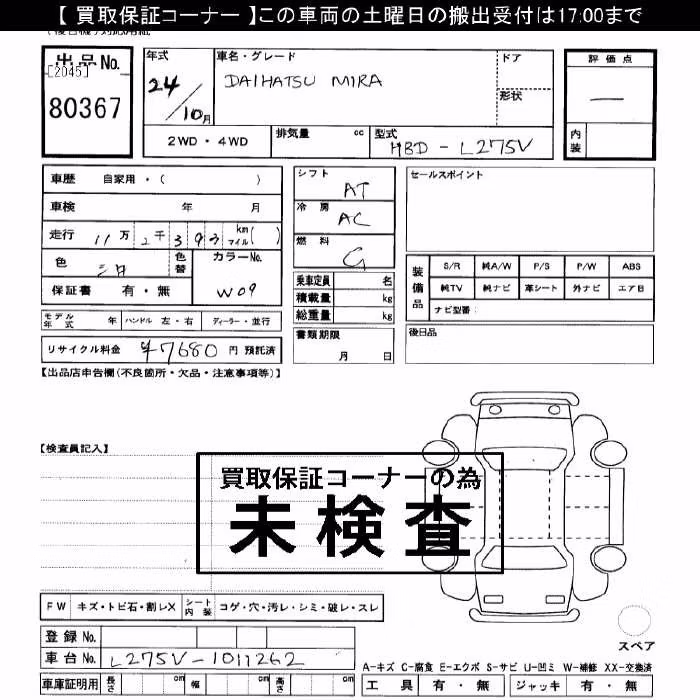 【 買取保証コーナー 】この車両の土曜日の搬出受付は17:00まで
出品No.
[2045]
80367
年式
24/10月
車名・グレード
DAIHATSU MIRA
ドア
形状
評価点
―
内装
2WD・4WD
排気量 cc
型式
HBD-L275V
車歴 自家用・( )
車検 年 月
走行 11万2千393 km マイル( )
色 シロ
色替
カラーNo.
W09
保証書 有・無
モデル年式 年
ハンドル 左・右
ディーラー・並行
リサイクル料金 ¥7680 円 預託済
シフト AT
冷房 AC
燃料 G
乗車定員 名
積載量 kg
総重量 kg
書類期限
月 日
セールスポイント
装備品
S/R 純A/W P/S P/W ABS
純TV 純ナビ 革シート 外ナビ エアB
ナビ型番:
後日品
【出品店申告欄(不良箇所・欠品・注意事項等)】
【検査員記入】
買取保証コーナーの為
未検査
FW キズ・トビ石・割レX シート内装 コゲ・穴・汚レ・シミ・破レ・スレ
登録No.
車台No. L275V-1011262
車庫証明用 長さ cm 幅 cm 高さ cm
スペア
A-キズ C-腐食 E-エクボ S-サビ U-凹ミ W-補修 XX-交換済
工具 有・無 ジャッキ 有・無